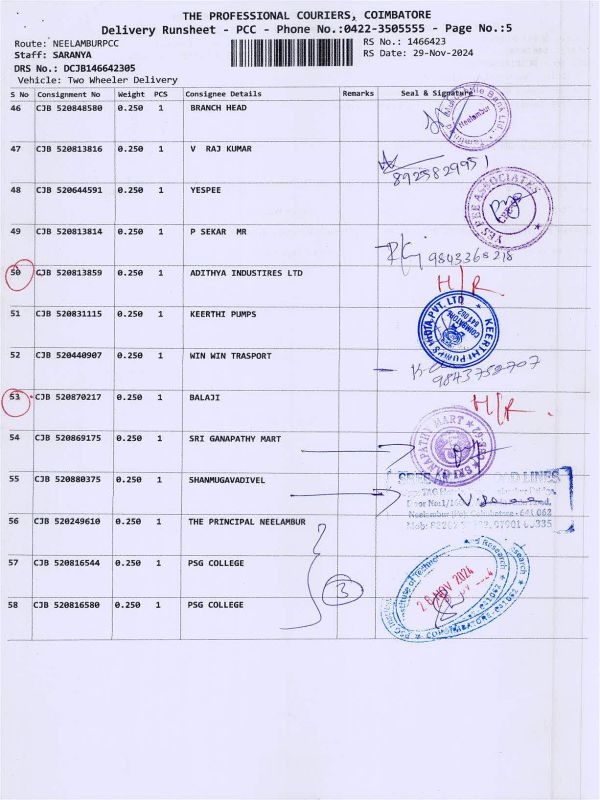 THE PROFESSIONAL COURIERS, COIMBATORE
Delivery Runsheet - PCC - Phone No.:0422-3505555 - Page No.:5
Route: NEELAMBURPCC RS No.: 1466423
Staff: SARANYA RS Date: 29-Nov-2024
DRS No.: DCJB146642305
Vehicle: Two Wheeler Delivery
S No Consignment No Weight PCS Consignee Details Remarks Seal & Signature
46 CJB 520848580 0.250 1 BRANCH HEAD
Neelambur
47 CJB 520813816 0.250 1 V RAJ KUMAR
8925829951
48 CJB 520644591 0.250 1 YESPEE
YES PEE ASSOCIATES
49 CJB 520813814 0.250 1 P SEKAR MR
9843368218
50 CJB 520813859 0.250 1 ADITHYA INDUSTIRES LTD
H/R
51 CJB 520831115 0.250 1 KEERTHI PUMPS
KEERTHI PUMPS INDIA PVT. LTD
COIMBATORE
641 062
52 CJB 520440907 0.250 1 WIN WIN TRASPORT
53 CJB 520870217 0.250 1 BALAJI
H/R.
54 CJB 520869175 0.250 1 SRI GANAPATHY MART
SRI GANAPATHY MART
55 CJB 520880375 0.250 1 SHANMUGAVADIVEL
LINES
Neelambur (Po), Coimbatore - 641 062
56 CJB 520249610 0.250 1 THE PRINCIPAL NEELAMBUR
57 CJB 520816544 0.250 1 PSG COLLEGE
3
58 CJB 520816580 0.250 1 PSG COLLEGE
NOV 2024